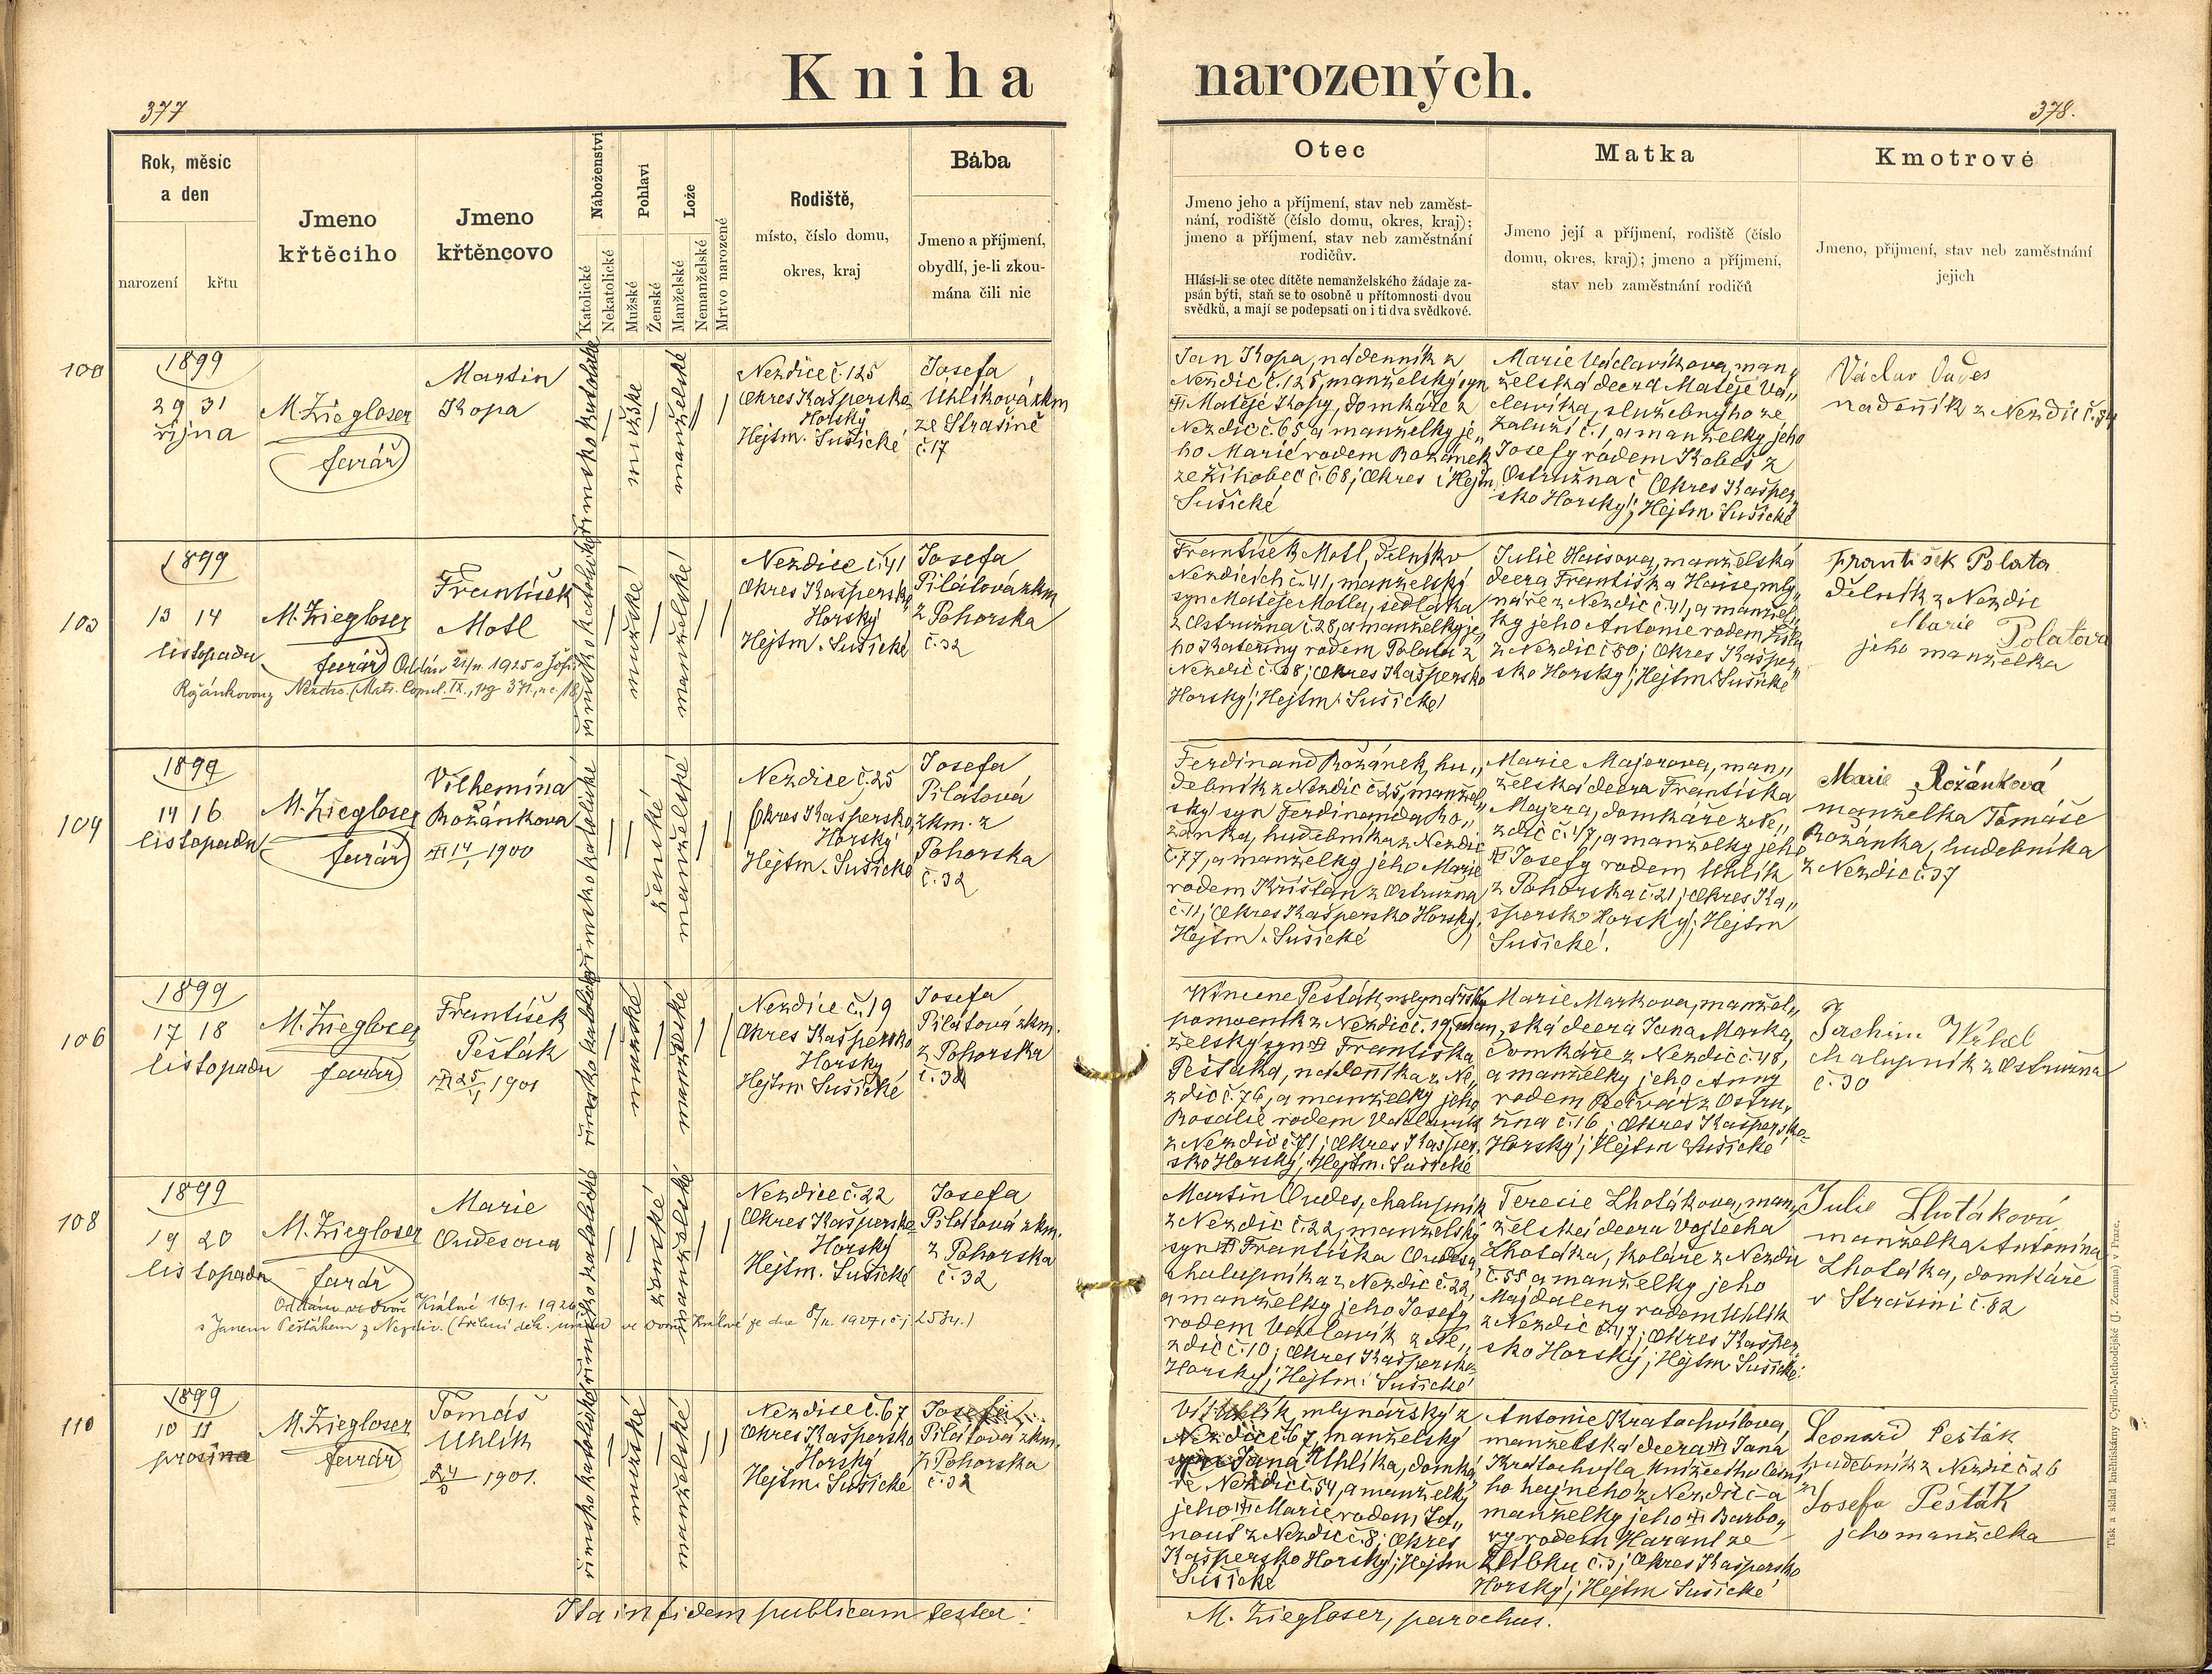 Kniha narozených.
377
378.
Rok, měsíc
a den
narození
křtu
Jmeno
křtěcího
Jmeno
křtěncovo
Náboženství
Katolické
Nekatolické
Pohlaví
Mužské
Ženské
Lože
Manželské
Nemanželské
Mrtvo narozené
Rodiště,
místo, číslo domu,
okres, kraj
Bába
Jmeno a příjmení,
obydlí, je-li zkou-
mána čili nic
Otec
Jmeno jeho a příjmení, stav neb zaměst-
nání, rodiště (číslo domu, okres, kraj);
jmeno a příjmení, stav neb zaměstnání
rodičův.
Hlásí-li se otec dítěte nemanželského žádaje za-
psán býti, staň se to osobně u přítomnosti dvou
svědků, a mají se podepsati on i ti dva svědkové.
Matka
Jmeno její a příjmení, rodiště (číslo
domu, okres, kraj); jmeno a příjmení,
stav neb zaměstnání rodičů
Kmotrové
Jmeno, příjmení, stav neb zaměstnání
jejich
100
1899
29 31
října
M. Ziegloser
farář
Martin
Kopa
římsko katolické
mužské
manželské
Nezdice č. 125
Okres Kašpersko
Horský
Hejtm. Sušické
Josefa
Uhlíková zkm
ze Strašině
č. 17
Jan Kopa, nádenník z
Nezdic č. 125, manželský syn
Matěje Kopy, domkáře z
Nezdic č. 65, a manželky je„
ho Marie rodem Rožánek
ze Žihobec č. 68; Okres i Hejtm.
Sušické
Marie Václavíkova, man„
želská dcera Matěje Vá„
clavíka, služebného ze
Zaluží č. 1, a manželky jeho
Josefy rodem Kobes z
Ostružna č Okres Kašper„
sko Horský; Hejtm Sušické
Václav
nadeník z Nezdic č.
103
1899
13 14
listopadu
M. Ziegloser
farář
František
Motl
Oddán 1925 s
Rožánkovou z Nezdic. (Matr. Copul. IX., pag 371., nc. 18)
římsko katolické
mužské
manželské
Nezdice č. 41
Okres Kašpersko
Horský
Hejtm. Sušické
Josefa
Pilátová zkm
z Pohorska
č. 32
František Motl, dělník v
Nezdicích č. 41, manželský
syn Matěje Motla, sedláka
z Ostružna č. 28, a manželky je„
ho Kateřiny rodem Polata z
Nezdic č. 68; Okres Kašpersko
Horský; Hejtm. Sušické
Julie Haisova, manželská
dcera Františka Haise, mly„
náře z Nezdic č. 41, a manžel„
ky jeho Antonie rodem
z Nezdic č 50; Okres Kašper„
sko Horský; Hejtm. Sušické
František Polata
dělník z Nezdic
Marie Polatova
jeho manželka
104
1899
14 16
listopadu
M. Ziegloser
farář
Vilhemína
Rožánkova
1900
římsko katolické
ženské
manželské
Nezdice č. 25
Okres Kašpersko
Horský
Hejtm. Sušické
Josefa
Pilátová
zkm. z
Pohorska
č. 32
Ferdinand Rožánek, hu„
debník z Nezdic č. 25, manžel„
ský syn Ferdinanda Ro„
žánka, hudebníka z Nezdic
č. 77, a manželky jeho Marie
rodem Křišťan z Ostružna
č. 11; Okres Kašpersko Horský;
Hejtm. Sušické
Marie Majerova, man„
želská dcera Františka
Majera, domkáře z Ne„
zdic č. 17, a manželky jeho
Josefy rodem Uhlík
z Pohorska č. 21; Okres Ka„
špersko Horský; Hejtm
Sušické.
Marie Rožánková
manželka Tomáše
Rožánka, hudebníka
z Nezdic č. 37
106
1899
17 18
listopadu
M. Ziegloser
farář
František
Pešták
1901
římsko katolické
mužské
manželské
Nezdice č. 19
Okres Kašpersko
Horský
Hejtm. Sušické
Josefa
Pilátová zkm.
z Pohorska
č. 32
Wincenc Pešták mlynářský
pomocník z Nezdic č. 19, man„
želský syn Františka
Peštáka, nádeníka z Ne„
zdic č. 76, a manželky jeho
Rosalie rodem Václavík
z Nezdic č. 71; Okres Kašper„
sko Horský; Hejtm. Sušické
Marie Markova, manžel„
ská dcera Jana Marka,
domkáře z Nezdic č. 48,
a manželky jeho Anny
rodem z Ostru„
žna č. 16; Okres Kašpersko
Horský; Hejtm Sušické
Jachim
chalupník z Ostružna
č. 30
108
1899
19 20
listopadu
M. Ziegloser
farář
Marie
Oudesova
Oddána ve Dvoře Králové 16/1. 1926
s Janem Peštákem z Nezdic.
římsko katolické
ženské
manželské
Nezdice č. 22
Okres Kašpersko
Horský
Hejtm. Sušické
Josefa
Pilátová zkm.
z Pohorska
č. 32
Martin Oudes, chalupník
z Nezdic č. 22, manželský
syn Františka Oudesa,
chalupníka z Nezdic č. 22,
a manželky jeho Josefy
rodem Václavík z Ne„
zdic č. 10; Okres Kašpersko
Horský; Hejtm. Sušické
Teresie Lhotákova, man„
želská dcera Vojtěcha
Lhotáka, koláře z Nezdic
č. 55 a manželky jeho
Majdaleny rodem Uhlík
z Nezdic č. 17; Okres Kašper„
sko Horský; Hejtm Sušické.
Julie Lhotáková
manželka Antonína
Lhotáka, domkáře
v Strašini č. 82
110
1899
10 11
prosince
M. Ziegloser
farář
Tomáš
Uhlík
1901.
římsko katolické
mužské
manželské
Nezdice č. 67
Okres Kašpersko
Horský
Hejtm. Sušické
Josefa
Pilátová zkm.
z Pohorska
č. 32
Vít Uhlík, mlynářský z
Nezdic č. 67, manželský
syn Jana Uhlíka, domká„
ře Nezdic č. 54, a manželky
jeho Marie rodem Ja„
nouš z Nezdic č. 8; Okres
Kašpersko Horský; Hejtm
Sušické
Antonie Kratochvílova,
manželská dcera Jana
Kratochvíla,
ho hajného z Nezdic č a
manželky jeho Barbo„
ry rodem Harant ze
č. 3; Okres Kašpersko
Horský; Hejtm Sušické
Leonard Pešták
hudebník z Nezdic č 26
Josefa Pešták
jeho manželka
Ita in fidem publicam testor:
M. Ziegloser, parochus.
Tisk a sklad knihtiskárny Cyrillo-Methodějské (J. Zeman) v Praze.